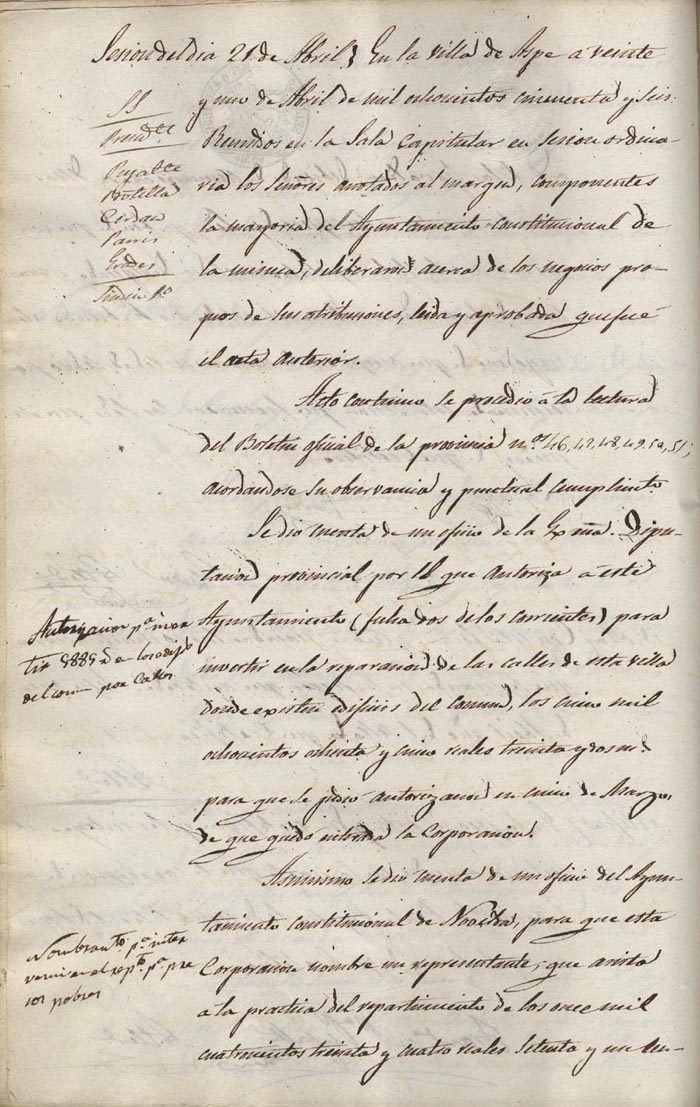 Sesion del dia 21 de Abril En la villa de Aspe a veinte
y uno de Abril de mil ochocientos cincuenta y seis
Reunidos en la Sala Capitular en sesion ordina-
ria los Señores anotados al margen, componentes
la mayoria del Ayuntamiento constitucional de
la misma, deliberaron acerca de los negocios pro-
pios de sus atribuciones, leida y aprobada que fué
el acta anterior.
SS
Presd.te
Pujalte
Botella
Cerdan
Sindico
Acto continuo se procedio a la lectura
del Boletin oficial de la provincia n.os 46, 47, 48, 49, 50, 51;
acordandose su observancia y puntual cumplim.to
Se dio cuenta de un oficio de la Exma. Dipu-
tacion provincial por el que autoriza a este
Ayuntamiento (fecha dos de los corrientes) para
invertir en la reparacion de las calles de esta villa
donde existen edificios del comun, los cinco mil
ochocientos ochenta y cinco reales treinta y dos m.s
para que se pidió autorizacion en cinco de Marzo,
de que quedó enterada la Corporacion.
Autorizacion p.a inver
tir 5885 de los
del comun por calles
Asimismo se dio cuenta de un oficio del Ayun-
tamiento constitucional de Novelda, para que esta
Corporacion nombre un representante, que asista
a la practica del repartimiento de los once mil
cuatrocientos treinta y cuatro reales setenta y un cen-
Nombram.to p.a inter
venir en el rep.to p.a pre
sos pobres